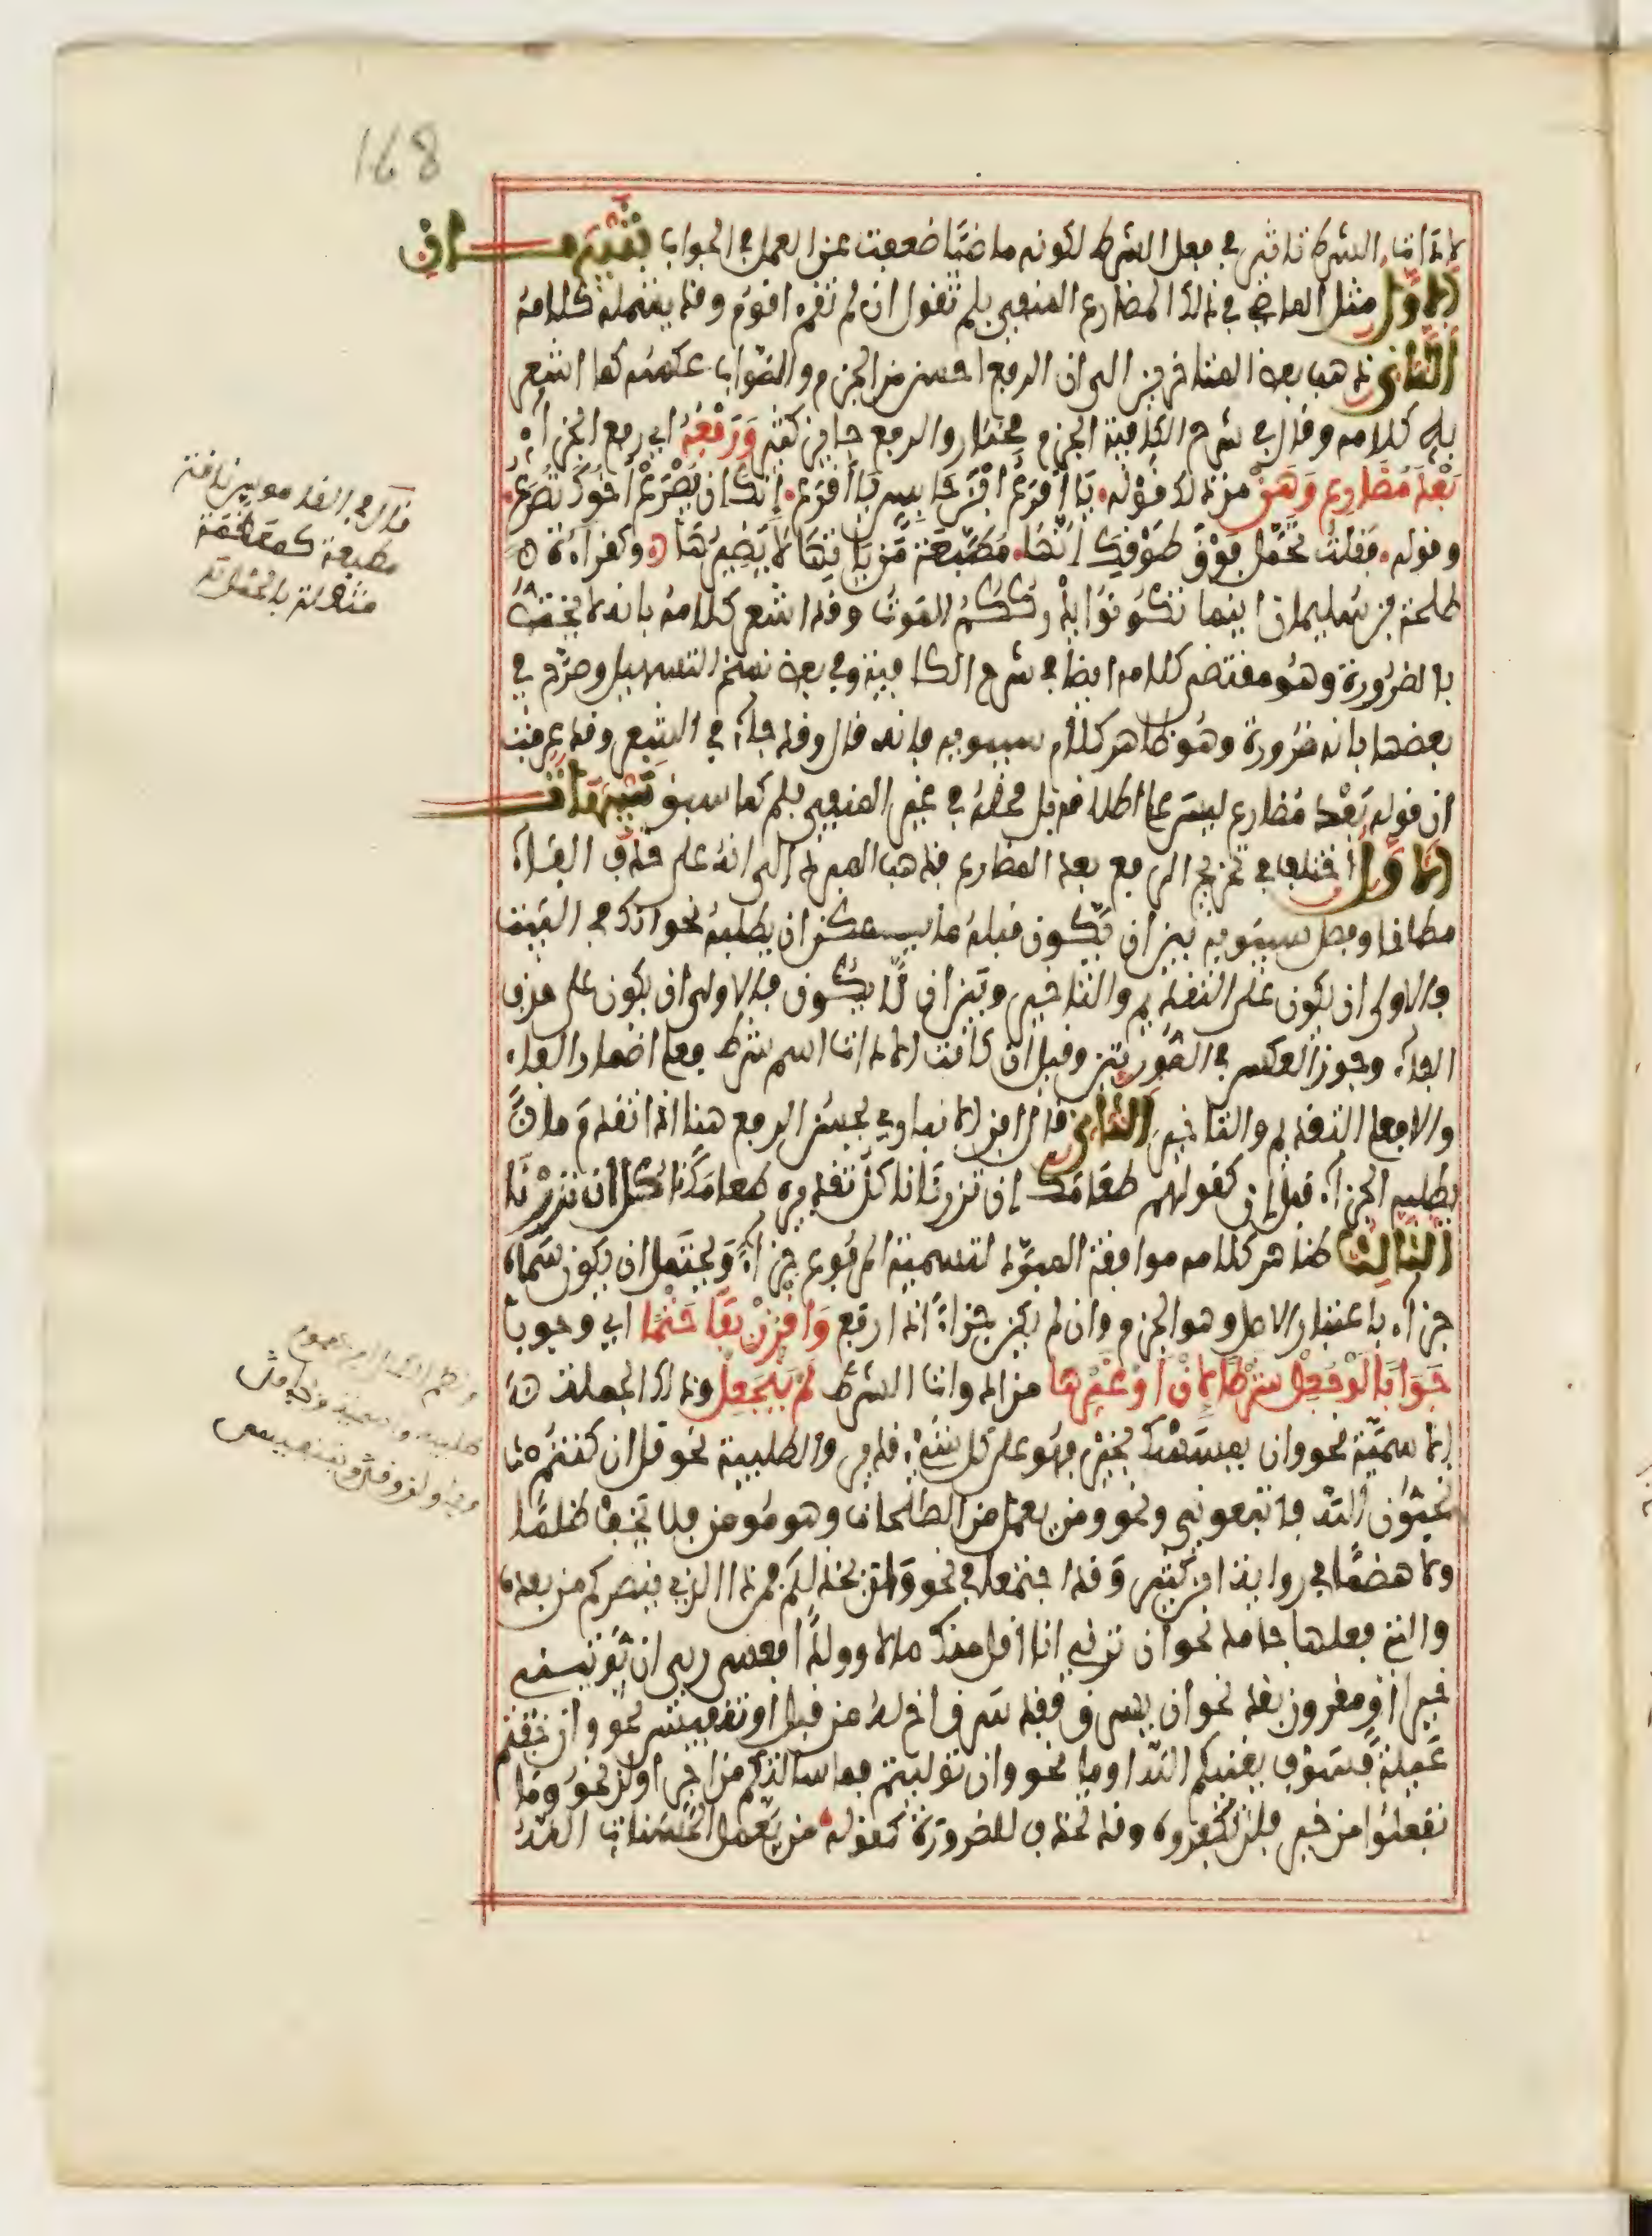 لاداة الشرط تاثير في فعل الشرط لكونه ماضيا ضعفت عن العمل في الجواب تنبيهات
الاول مثل الماضي في ذلك المضارع المنفي بلم تقول ان لم تقم اقوم وقد يشمله كلامه
الثاني ذهب بعض المتاخرين الى ان الرفع احسن من الجزم والصواب عكسه كما اشعر
به كلامه وقال في شرح الكافية الجزم مختار والرفع جايز كثير وَرَفْعُهُ اي رفع الجزاء
بَعْدَ مُضَارِعٍ وَهَنْ من ذلك قوله يا اقرع ابن حابس يا اقرع إنك ان يصرع اخوك تصرع
وقوله فقلت تحمل فوق طوقك انها مطبعة من ياتها لا يضيرها وكقراءة
طلحة بن سليمان اينما تكونوا يدرككم الموت وقد اشعر كلامه بانه لا يختص
بالضرورة وهو مقتضى كلامه ايضا في شرح الكافية وفي بعض نسخ التسهيل وصرح في
بعضها بانه ضرورة وهو ظاهر كلام سيبويه فانه قال وقد جاء في الشعر وقد عرفت
ان قوله بعد مضارع ليس على اطلاقه بل محله في غير المنفي بلم كما سبق تنبيهات
الاول اختلف في تخريج الرفع بعد المضارع فذهب المبرد الى انه على حذف الفاء
مطلقا وفصل سيبويه بين ان يكون قبله ما يمكن ان يطلبه نحو انك في البيت
فالاولى ان يكون على التقديم والتاخير وبين ان لا يكون فالاولى ان يكون على حذف
الفاء وجوز العكس في الصورتين وقيل ان كانت الاداة اسم شرط فعلى اضمار الفاء
والا فعلى التقديم والتاخير الثاني قال ابن الانباري يحسن الرفع هنا اذا تقدم ما
يطلب الجزاء قبل إن كقولهم طعامك إن تزرنا ناكل تقديره طعامك ناكل ان تزرنا
الثالث ظاهر كلامه موافقة المبرد لتسميته المرفوع جزاء ويحتمل ان يكون سماه
جزاء باعتبار الاصل وهو الجزم وان لم يكن جزاء اذا رفع وَاقْرُنْ بِفَا حَتْمًا اي وجوبا
جَوَابًا لَوْ جُعِلْ شَرْطًا لِإنْ أَوْ غَيْرِهَا من ادوات الشرط لَمْ يَنْجَعِلْ وذلك الجملة
الاسمية نحو وان يمسسك بخير فهو على كل شيء قدير والطلبية نحو قل ان كنتم
تحبون الله فاتبعوني ونحو ومن يعمل من الصالحات وهو مومن فلا يخف ظلما
ولا هضما في رواية ابن كثير وقد اجتمعا في نحو وان يخذلكم فمن ذا الذي ينصركم من بعده
والتي فعلها جامد نحو ان ترني انا اقل منك مالا وولدا فعسى ربي ان يوتيني
خيرا او مقرون بقد نحو ان يسرق فقد سرق اخ له من قبل او تنفيس نحو وان خفتم
عيلة فسوف يغنيكم الله او ما نحو وان توليتم فما سالتكم من اجر او لن نحو وما
تفعلوا من خير فلن تكفروه وقد تحذف للضرورة كقوله من يفعل الحسنات الله